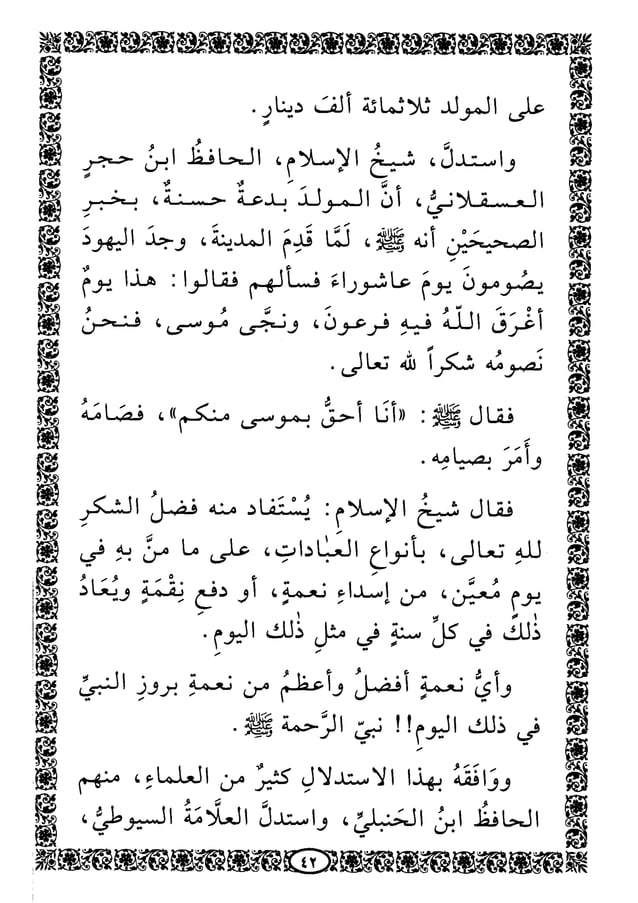 على المولد ثلاثمائة ألفَ دينارٍ.
واستدلَّ، شيخُ الإسلامِ، الحافظُ ابنُ حجرٍ
العسقلانيُّ، أنَّ المولدَ بدعةٌ حسنةٌ، بخبرِ
الصحيحَيْنِ أنه ﷺ، لَمَّا قَدِمَ المدينةَ، وجدَ اليهودَ
يصُومونَ يومَ عاشوراءَ فسألهم فقالوا: هذا يومٌ
أغْرَقَ اللّهُ فيهِ فرعونَ، ونجَّى مُوسى، فنحنُ
نَصومُه شكراً لله تعالى.
فقال ﷺ: «أنَا أحقُّ بموسى منكم»، فصَامَهُ
وأَمَرَ بصيامِه.
فقال شيخُ الإسلامِ: يُسْتَفاد منه فضلُ الشكرِ
للهِ تعالى، بأنواعِ العبٰاداتِ، على ما منَّ بهِ في
يومٍ مُعيَّن، من إسداءِ نعمةٍ، أو دفعِ نِقْمَةٍ ويُعَادُ
ذٰلكَ في كلِّ سنةٍ في مثلِ ذٰلك اليومِ.
وأيُّ نعمةٍ أفضلُ وأعظمُ من نعمةِ بروزِ النبيِّ
في ذلك اليومِ!! نبيّ الرَّحمة ﷺ.
ووَافَقَهُ بهذا الاستدلالِ كثيرٌ من العلماءِ، منهم
الحافظُ ابنُ الحَنبليِّ، واستدلَّ العلَّامَةُ السيوطيُّ،
٤٢